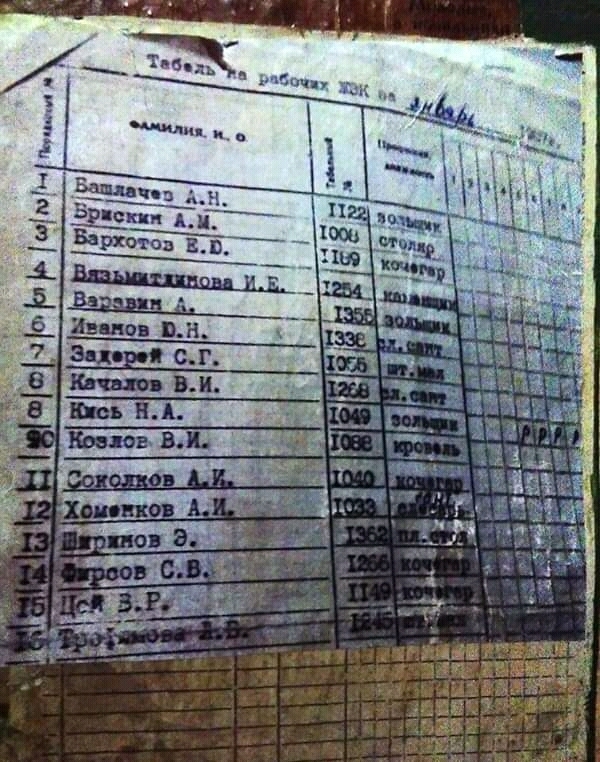 Табель на рабочих ЖЭК за январь
Порядковый № ФАМИЛИЯ, И., О. Табельный № 1 2 3 4 5 6 7 8
1 Башлачев А.Н. 1122 зольщик
2 Брискин А.М. 1008 столяр
3 Бархотов Е.Ю. 1189 кочегар
4 Вязьмитдинова И.Е. 1254
5 Варавин А. 1355 зольщик
6 Иванов Ю.Н. 1336 сл.сант
7 Задерей С.Г. шт.мал
8 Качалов В.И. 1268 сл.сант
8 Кись Н.А. 1049 зольщик
Козлов В.И. 1088 кровель р р р р
11 Соколков А.И. 1040 кочегар
12 Хоменков А.И. 1033 слесарь
13 Ширинов Э. 1362 пл.стол
14 Фирсов С.В. 1266 кочегар
15 Цой В.Р. 1149 кочегар
16 Трофимова 1245